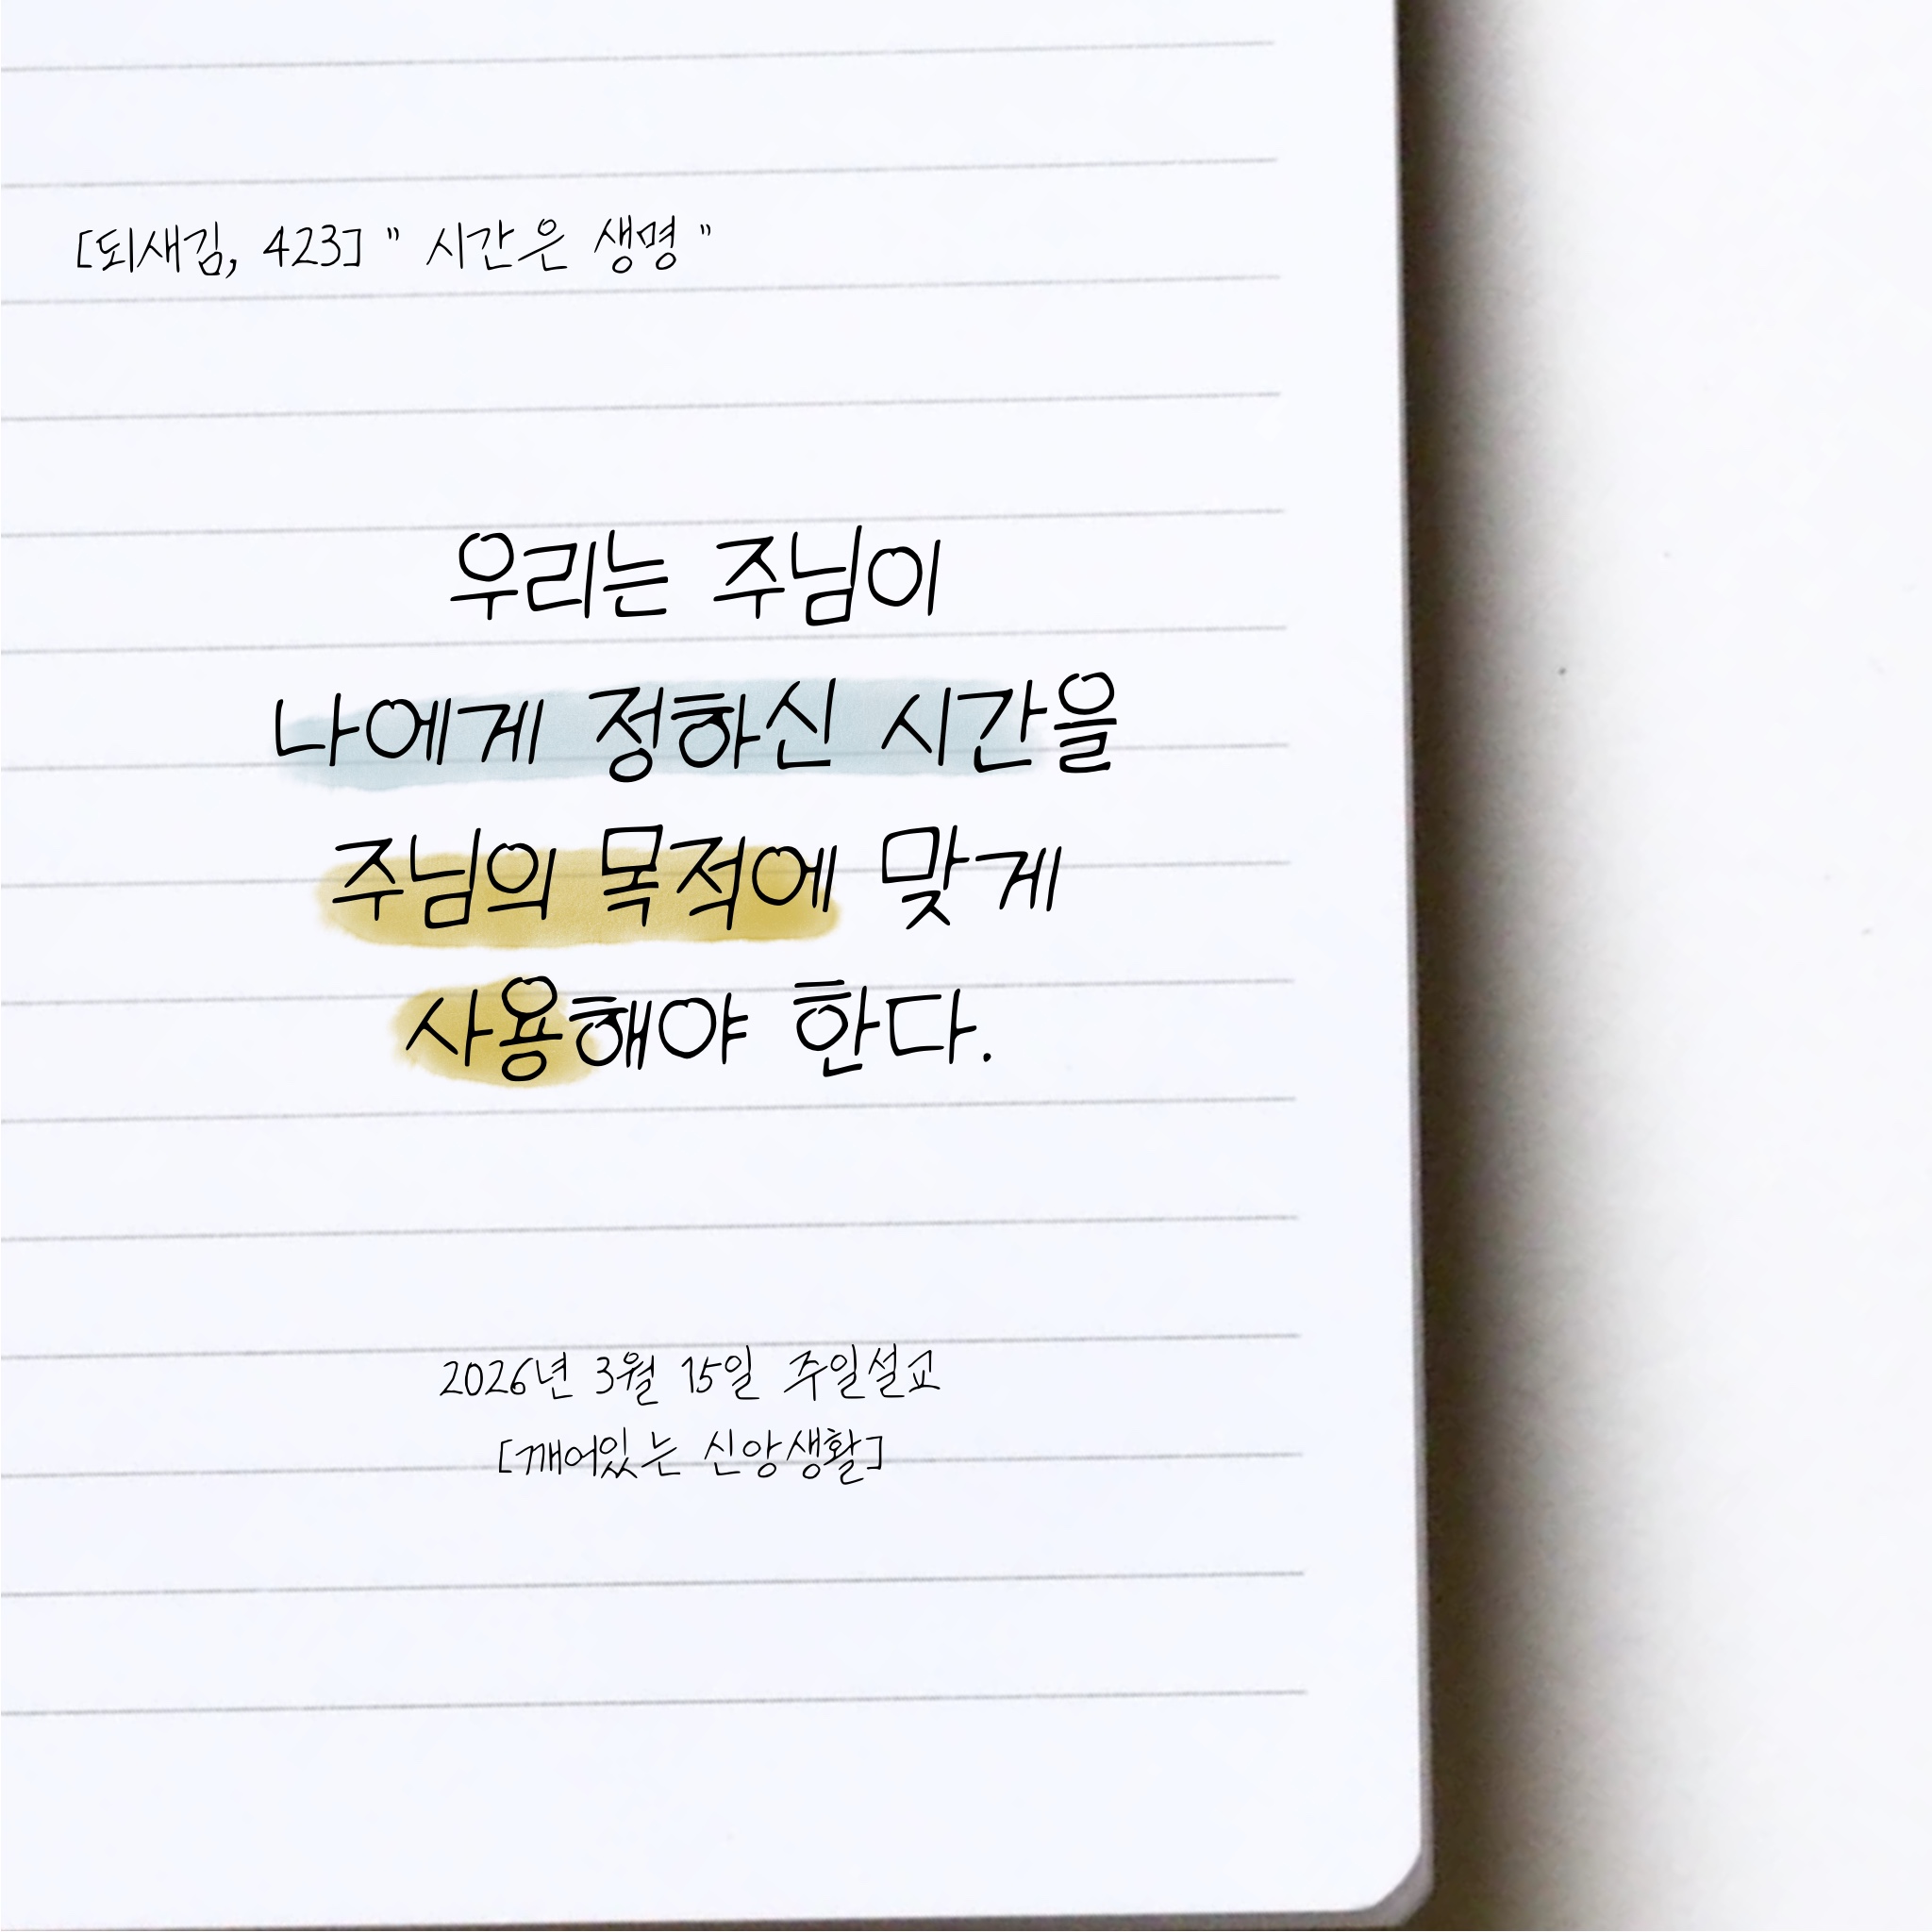 [되새김, 423] " 시간은 생명 "
우리는 주님이
나에게 정하신 시간을
주님의 목적에 맞게
사용해야 한다.
2026년 3월 15일 주일설교
[깨어있는 신앙생활]